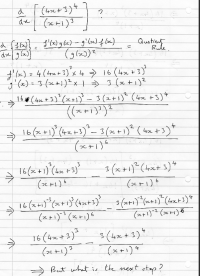 d/dx [ (4x+3)^4 / (x+1)^3 ] ?
d/dx [ f(x) / g(x) ] = ( f'(x)g(x) - g'(x)f(x) ) / (g(x))^2 = Quotient Rule
f'(x) = 4(4x+3)^3 × 4 ⇒ 16(4x+3)^3
g'(x) = 3(x+1)^2 × 1 ⇒ 3(x+1)^2
⇒ ( 16(4x+3)^3(x+1)^3 - 3(x+1)^2(4x+3)^4 ) / ((x+1)^3)^2
⇒ ( 16(x+1)^3(4x+3)^3 - 3(x+1)^2(4x+3)^4 ) / (x+1)^6
⇒ 16(x+1)^3(4x+3)^3 / (x+1)^6 - 3(x+1)^2(4x+3)^4 / (x+1)^6
⇒ 16(x+1)^-3(x+1)^3(4x+3)^3 / (x+1)^-3(x+1)^6 - 3(x+1)^-2(x+1)^2(4x+3)^4 / (x+1)^-2(x+1)^6
⇒ 16(4x+3)^3 / (x+1)^3 - 3(4x+3)^4 / (x+1)^4
⇒ But what is the next step?